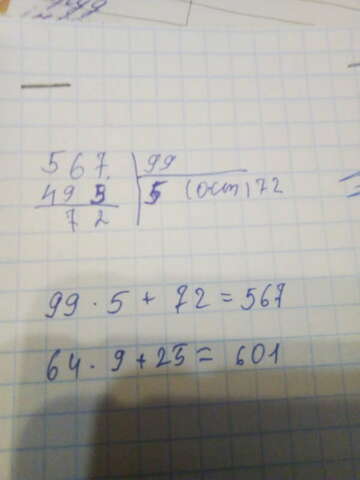 567 99
495 5 (ост) 72
72
99 · 5 + 72 = 567
64 · 9 + 25 = 601